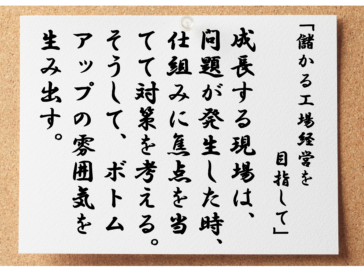 「儲かる工場経営を
目指して」
成長する現場は、
問題が発生した時、
仕組みに焦点を当
てて対策を考える。
そうして、ボトム
アップの雰囲気を
生み出す。